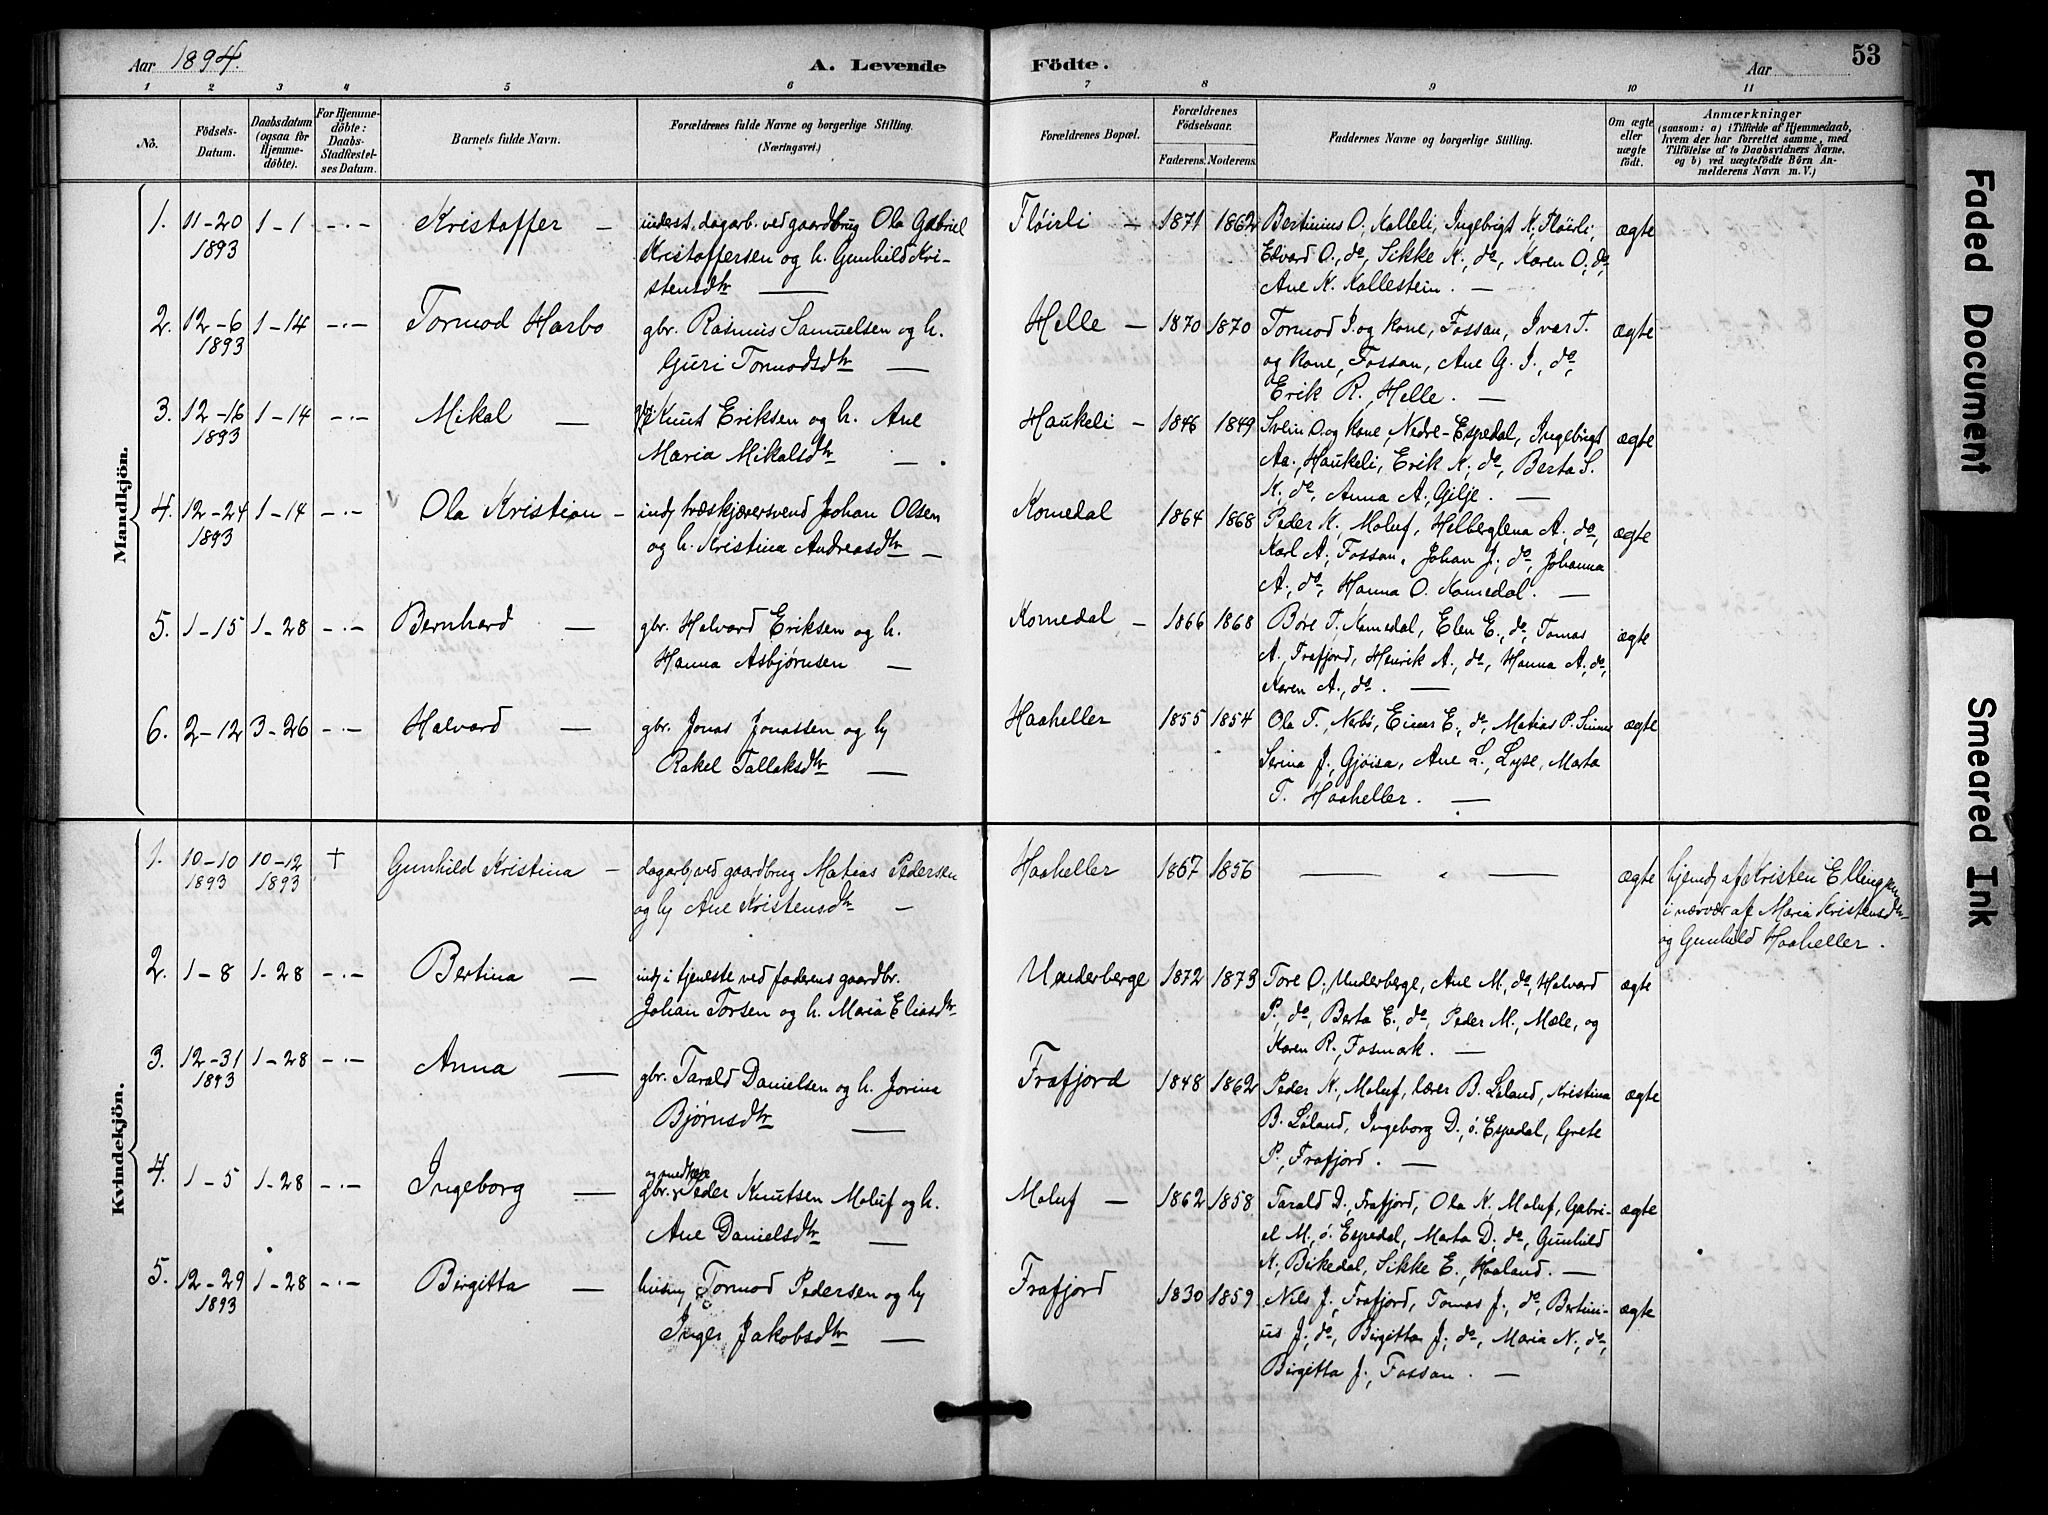 Aar 1894. A. Levende Födte. Aar 53
1 2 3 4 5 6 7 8 9 10 11
No. Födsels-Datum. Daabsdatum (ogsaa for Hjemmedöbte). For Hjemmedöbte: Daabs-Stadfæstelses Datum. Barnets fulde Navn. Forældrenes fulde Navne og borgerlige Stilling. (Næringsvei.) Forældrenes Bopæl. Forældrenes Födselsaar. Faderens. Moderens. Faddernes Navne og borgerlige Stilling. Om ægte eller uægte födt. Anmærkninger (saasom: a) i Tilfælde af Hjemmedaab, hvem der har forrettet samme, med Tilföielse af to Daabsvidners Navne, og b) ved uægtefödte Börn Anmelderens Navn m. V.)
Mandkjön.
1. 11-20 1-1 -.- Kristoffer — inderst, dagarb. ved gaardbrug Ola Gabriel Fløirli - 1871 1862 Bertinius O. Kalleli, Ingebrigt K, Fløirli, ægte
1893 Kristoffersen og h. Gunhild Kri- Edvard O., do, Sikke K., do, Karen O., do,
stensdtr — Ane K. Kallestein. —
2. 12-6 1-14 -.- Tormod Harbo gbr. Rasmus Samuelsen og h. Helle - 1870 1870 Tormod I. og kone, Fossan, Ivar T. ægte
1893 Guri Tormodsdtr — og kone, Fossan, Ane G. I., do,
Erik R. Helle. —
3. 12-16 1-14 -.- Mikal — Knut Eriksen og h. Ane Haukeli - 1846 1849 Svein O. og kone, Nedre-Espedal, Ingebrigt ægte
1893 Maria Mikalsdtr — Aa., Haukeli, Erik K, do, Berta S.
K, do, Anna A, Gilje. —
4. 12-24 1-14 -.- Ola Kristian - indj træskjærersvend Johan Olsen Komedal 1864 1868 Peder K, Moluf, Helberglena A., do, ægte
1893 og h. Kristina Andreasdtr — Karl A, Fossan, Johan J., do, Johanna
A., do, Hanna O. Komedal. —
5. 1-15 1-28 -.- Bernhard — gbr. Halvard Eriksen og h. Komedal - 1866 1868 Børe T. Komedal, Elen E., do, Tomas ægte
Hanna Asbjørnsen — A., Frafjord, Henrik A., do, Hanna A., do,
Karen A., do. —
6. 2-12 3-26 -.- Halvard — gbr. Jonas Jonassen og hj Haaheller 1855 1854 Ola T. Nesbø, Einar E., do, Matias P. ægte
Rakel Tallaksdtr — Serina J., Gjøisa, Ane L., Lyse, Marta
T. Haaheller. —
Kvindekjön.
1. 10-10 10-12 † Gunhild Kristina - dagarbj ved gaardbrug Matias Pedersen Haaheller 1867 1856 — " — ægte hjemdj af Kristen Ellingsen
1893 1893 og hj Ane Kristensdtr — i nærvær af Maria Kristensdtr
og Gunhild Haaheller.
2. 1-8 1-28 -.- Bertina — indj i tjeneste ved faderens gaardbr. Underberge 1872 1873 Tore O., Underberge, Ane M., do, Halvard ægte
Johan Torsen og h. Maria Eliasdtr P., do, Berta E., do, Peder M., Mæle, og
Karen R., Fosmark. —
3. 12-31 1-28 -.- Anna — gbr. Tarald Danielsen og h. Jorina Frafjord 1848 1862 Peder K, Moluf, lærer B. Løland, Kristina ægte
1893 Bjørnsdtr — B. Løland, Ingeborg D., ö. Espedal, Grete
P., Frafjord. —
4. 1-5 1-28 -.- Ingeborg — gbr. Peder Knutsen Moluf og h. Moluf - 1862 1858 Tarald D., Frafjord, Ola K. Moluf, Gabri- ægte
Ane Danielsdtr — el M., ö. Espedal, Marta D., do, Gunhild
K, Birkedal, Sikke E., Haaland. —
5. 12-29 1-28 -.- Birgitta — husmj Tormod Pedersen og hj Frafjord 1830 1859 Nils J., Frafjord, Tomas J., do, Bertini- ægte
1893 Inger Jakobsdtr — us J., do, Birgitta J., do, Maria N., do,
Birgitta J., Fossan. —
Faded Document
Smeared Ink